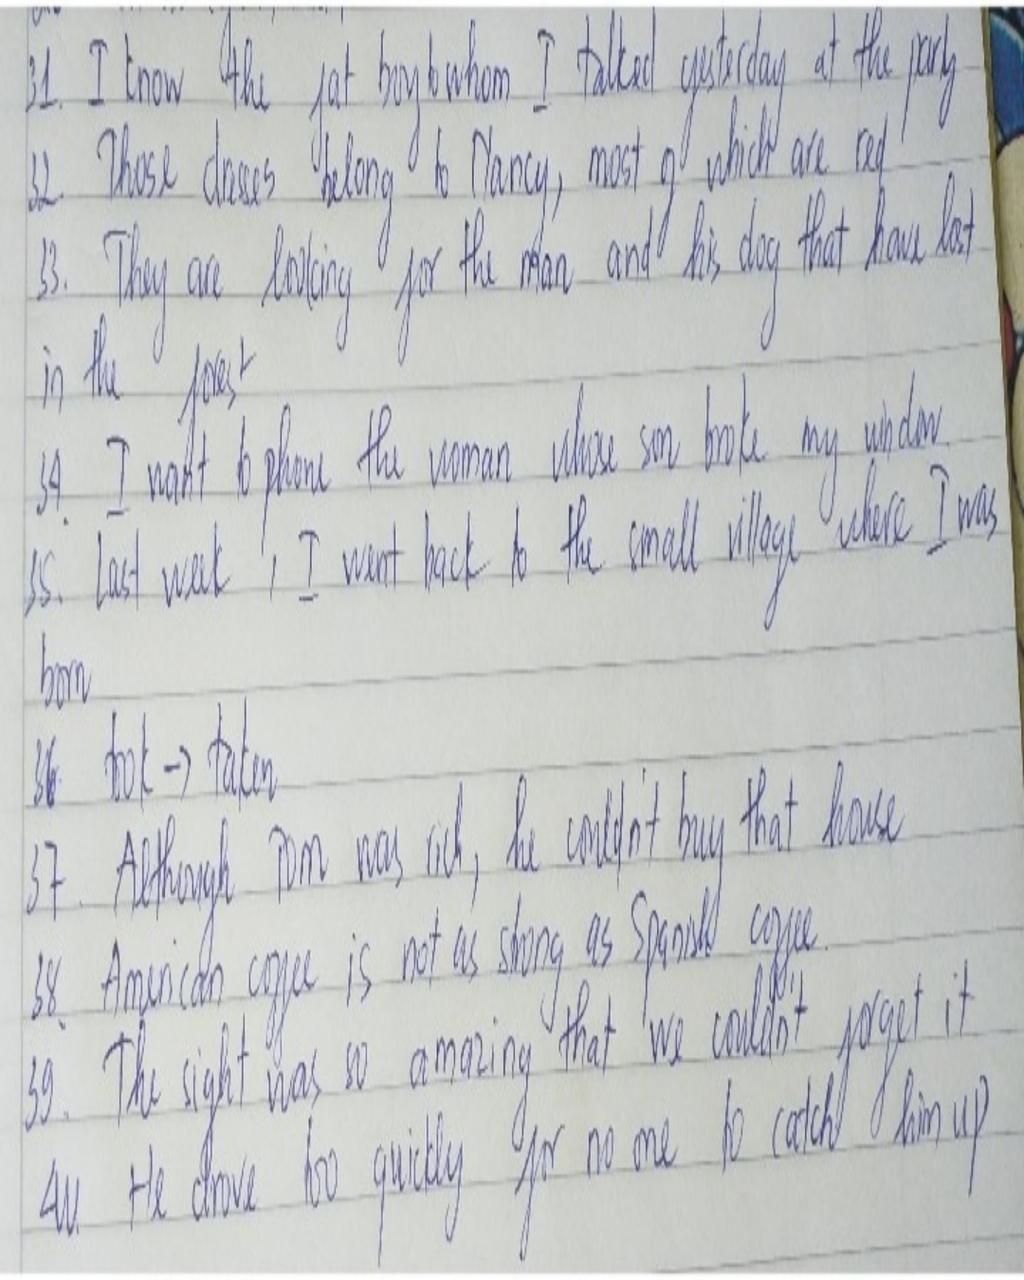 31. I know the fat boy to whom I talked yesterday at the party
32 Those dresses belong to Nancy, most of which are red
33. They are looking for the man and his dog that have lost
in the forest
34. I want to phone the woman whose son broke my window.
35. Last week, I went back to the small village where I was
born
36 took → taken
37. Although Tom was rich, he couldn't buy that house
38. American coffee is not as strong as Spanish coffee.
39. The sight was so amazing that we couldn't forget it
40. He drove too quickly for no one to catch him up